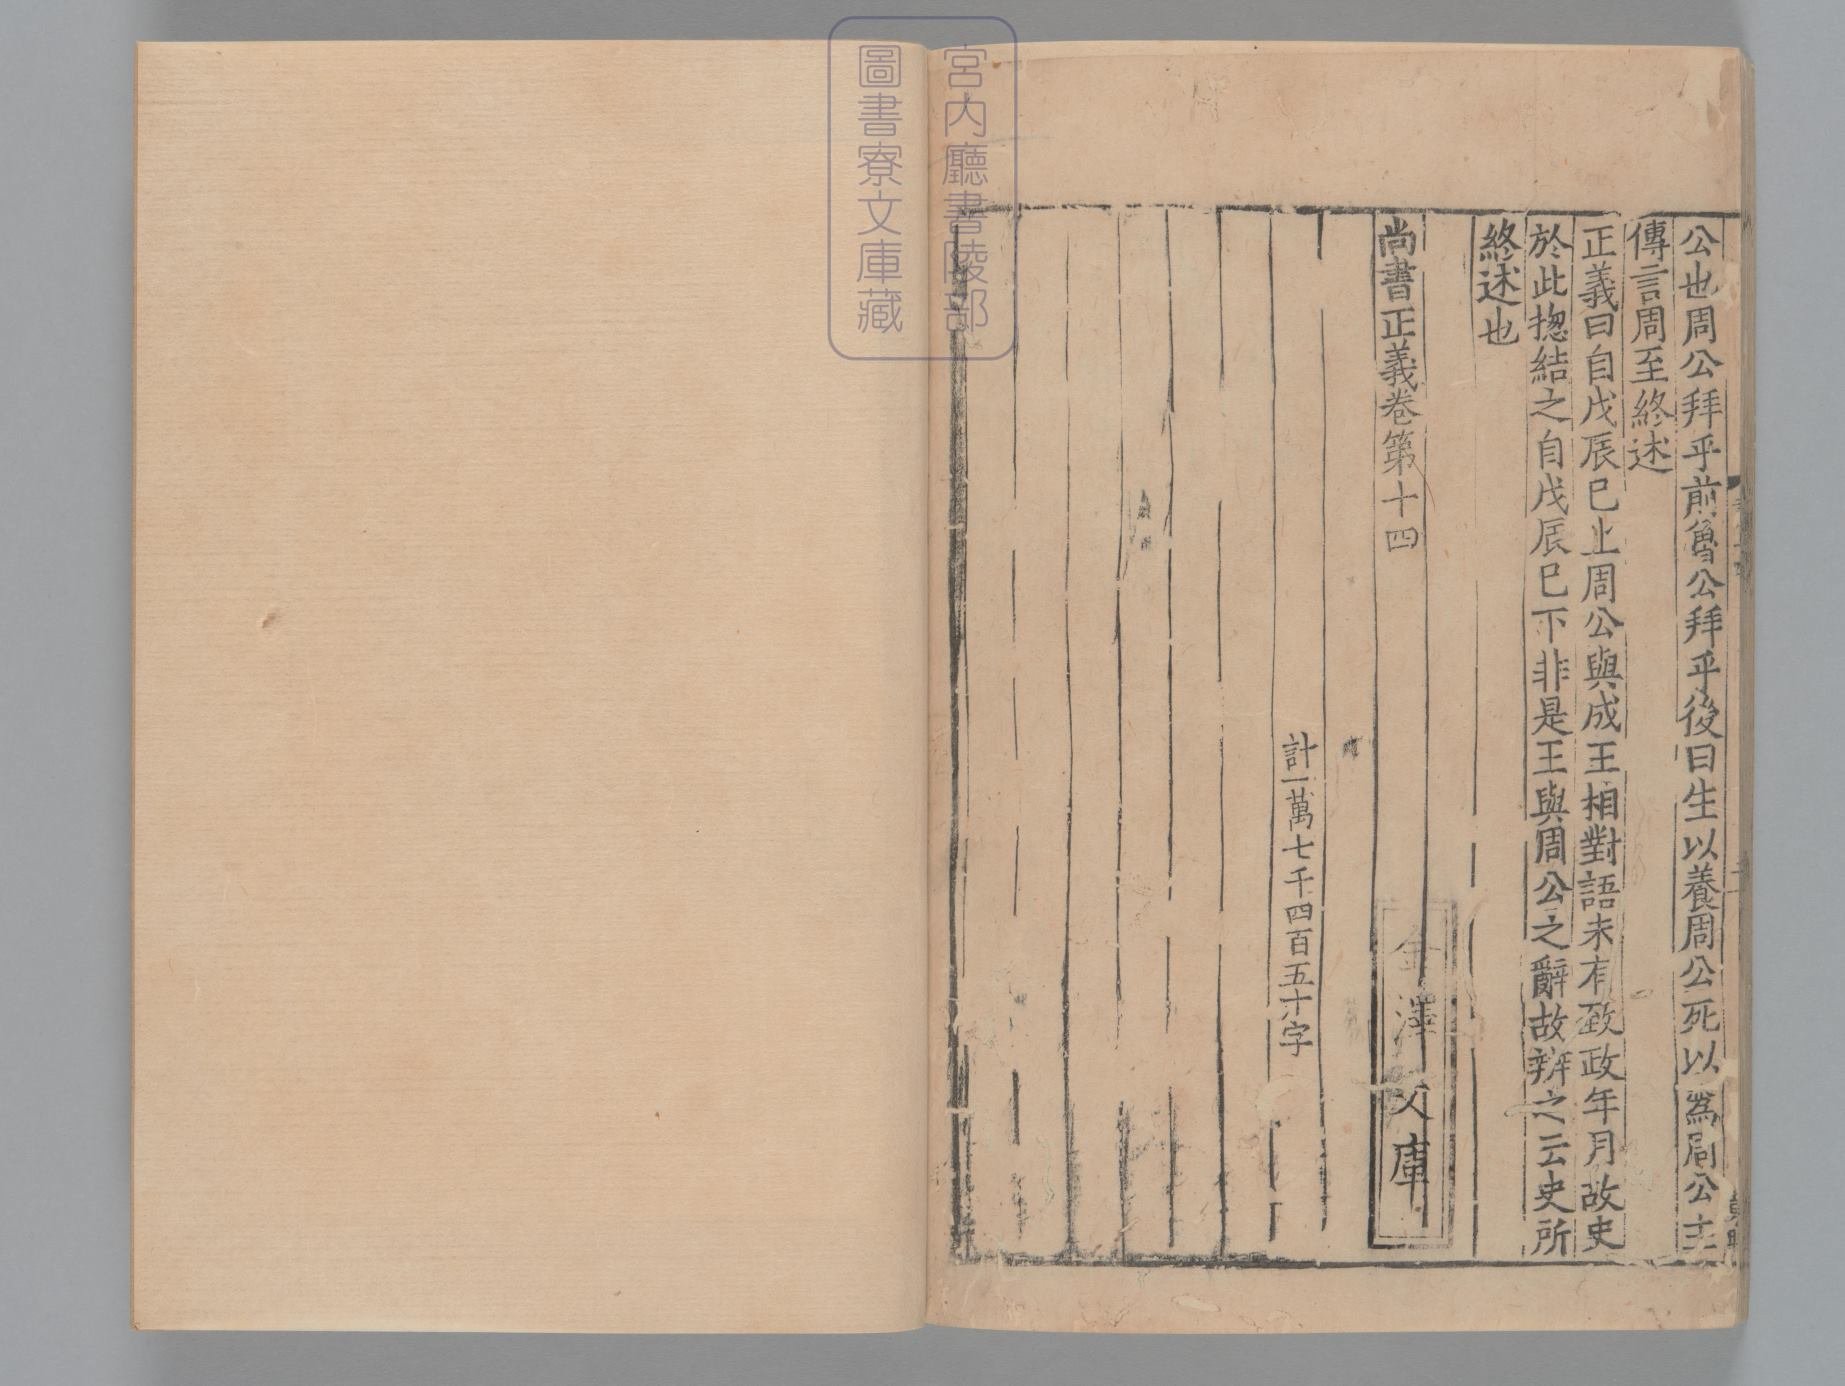 公也周公拜乎前魯公拜乎後曰生以養周公死以為周公主
傳言周至終述
正義曰自戊辰巳上周公與成王相對語未有致政年月故史
於此揔結之自戊辰巳下非是王與周公之辭故辨之云史所
終述也
尚書正義卷第十四
金澤文庫
計一萬七千四百五十字
宮內廳書陵部
圖書寮文庫藏